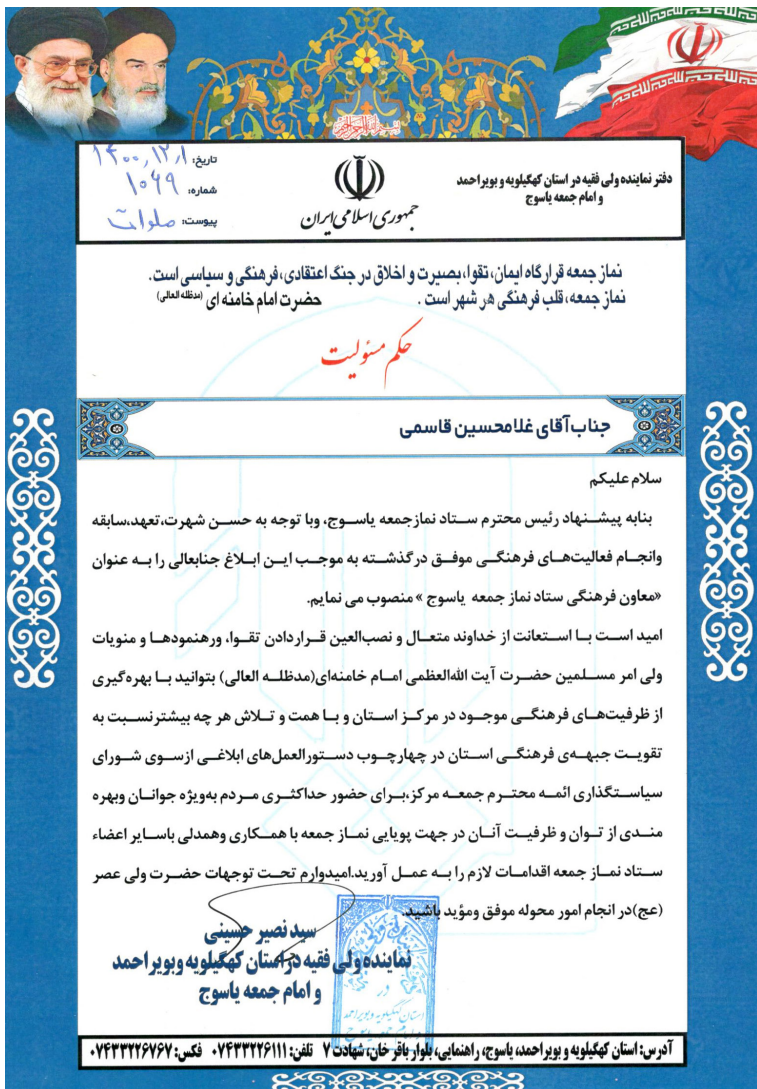 بسم الله الرحمن الرحیم
تاریخ: ۱۴۰۰/۱۲/۱
شماره: ۱۰۶۹
پیوست: صلوات
جمهوری اسلامی ایران
دفتر نماینده ولی فقیه در استان کهگیلویه و بویراحمد
و امام جمعه یاسوج
نماز جمعه قرارگاه ایمان، تقوا، بصیرت و اخلاق در جنگ اعتقادی، فرهنگی و سیاسی است.
نماز جمعه، قلب فرهنگی هر شهر است . حضرت امام خامنه ای (مدظله العالی)
حکم مسئولیت
جناب آقای غلامحسین قاسمی
سلام علیکم
بنابه پیشنهاد رئیس محترم ستاد نمازجمعه یاسوج، وبا توجه به حسن شهرت،تعهد،سابقه
وانجام فعالیت‌های فرهنگی موفق درگذشته به موجب این ابلاغ جنابعالی را به عنوان
«معاون فرهنگی ستاد نماز جمعه یاسوج » منصوب می نمایم.
امید است با استعانت از خداوند متعال و نصب‌العین قراردادن تقوا، ورهنمودها و منویات
ولی امر مسلمین حضرت آیت الله‌العظمی امام خامنه‌ای(مدظله العالی) بتوانید با بهره‌گیری
از ظرفیت‌های فرهنگی موجود در مرکز استان و با همت و تلاش هر چه بیشترنسبت به
تقویت جبهه‌ی فرهنگی استان در چهارچوب دستورالعمل‌های ابلاغی ازسوی شورای
سیاستگذاری ائمه محترم جمعه مرکز،برای حضور حداکثری مردم به‌ویژه جوانان وبهره
مندی از توان و ظرفیت آنان در جهت پویایی نماز جمعه با همکاری وهمدلی باسایر اعضاء
ستاد نماز جمعه اقدامات لازم را به عمل آورید.امیدوارم تحت توجهات حضرت ولی عصر
(عج)در انجام امور محوله موفق ومؤید باشید.
سیدنصیر حسینی
نماینده ولی فقیه دراستان کهگیلویه وبویراحمد
و امام جمعه یاسوج
آدرس: استان کهگیلویه و بویراحمد، یاسوج، راهنمایی، بلوار باقر خان، شهادت ۷ تلفن: ۰۷۴۳۳۲۲۶۱۱۱ فکس: ۰۷۴۳۳۲۲۶۷۶۷